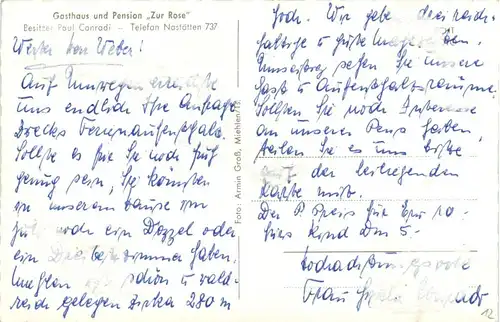 Gasthaus und Pension „Zur Rose"
Besitzer Paul Conradi - Telefon Nastätten 737
Werter Herr Weber!
Auf Umwegen erreichte
uns endlich Ihre Anfrage
zwecks Ferienaufenthalt.
Sollte es für Sie noch früh
genug sein, Sie könnten
in unserem Hause im
noch ein Doppel oder
ein Dreibettzimmer haben.
Miehlen schön u wald-
reich gelegen zirka 280 m
hoch. Wir geben drei reich-
haltige u gute
sehen Sie unsere
Gast u Aufenthaltsräume.
Sollten Sie noch Interesse
an unserer Pens haben,
teilen Sie es uns bitte
auf der beiliegenden
Karte mit.
Der P Preis für Erw 10-
fürs Kind Dm 5-
Hochachtungsvoll
Frau Conradi
Foto: Armin Groß, Miehlen/Ts.
12